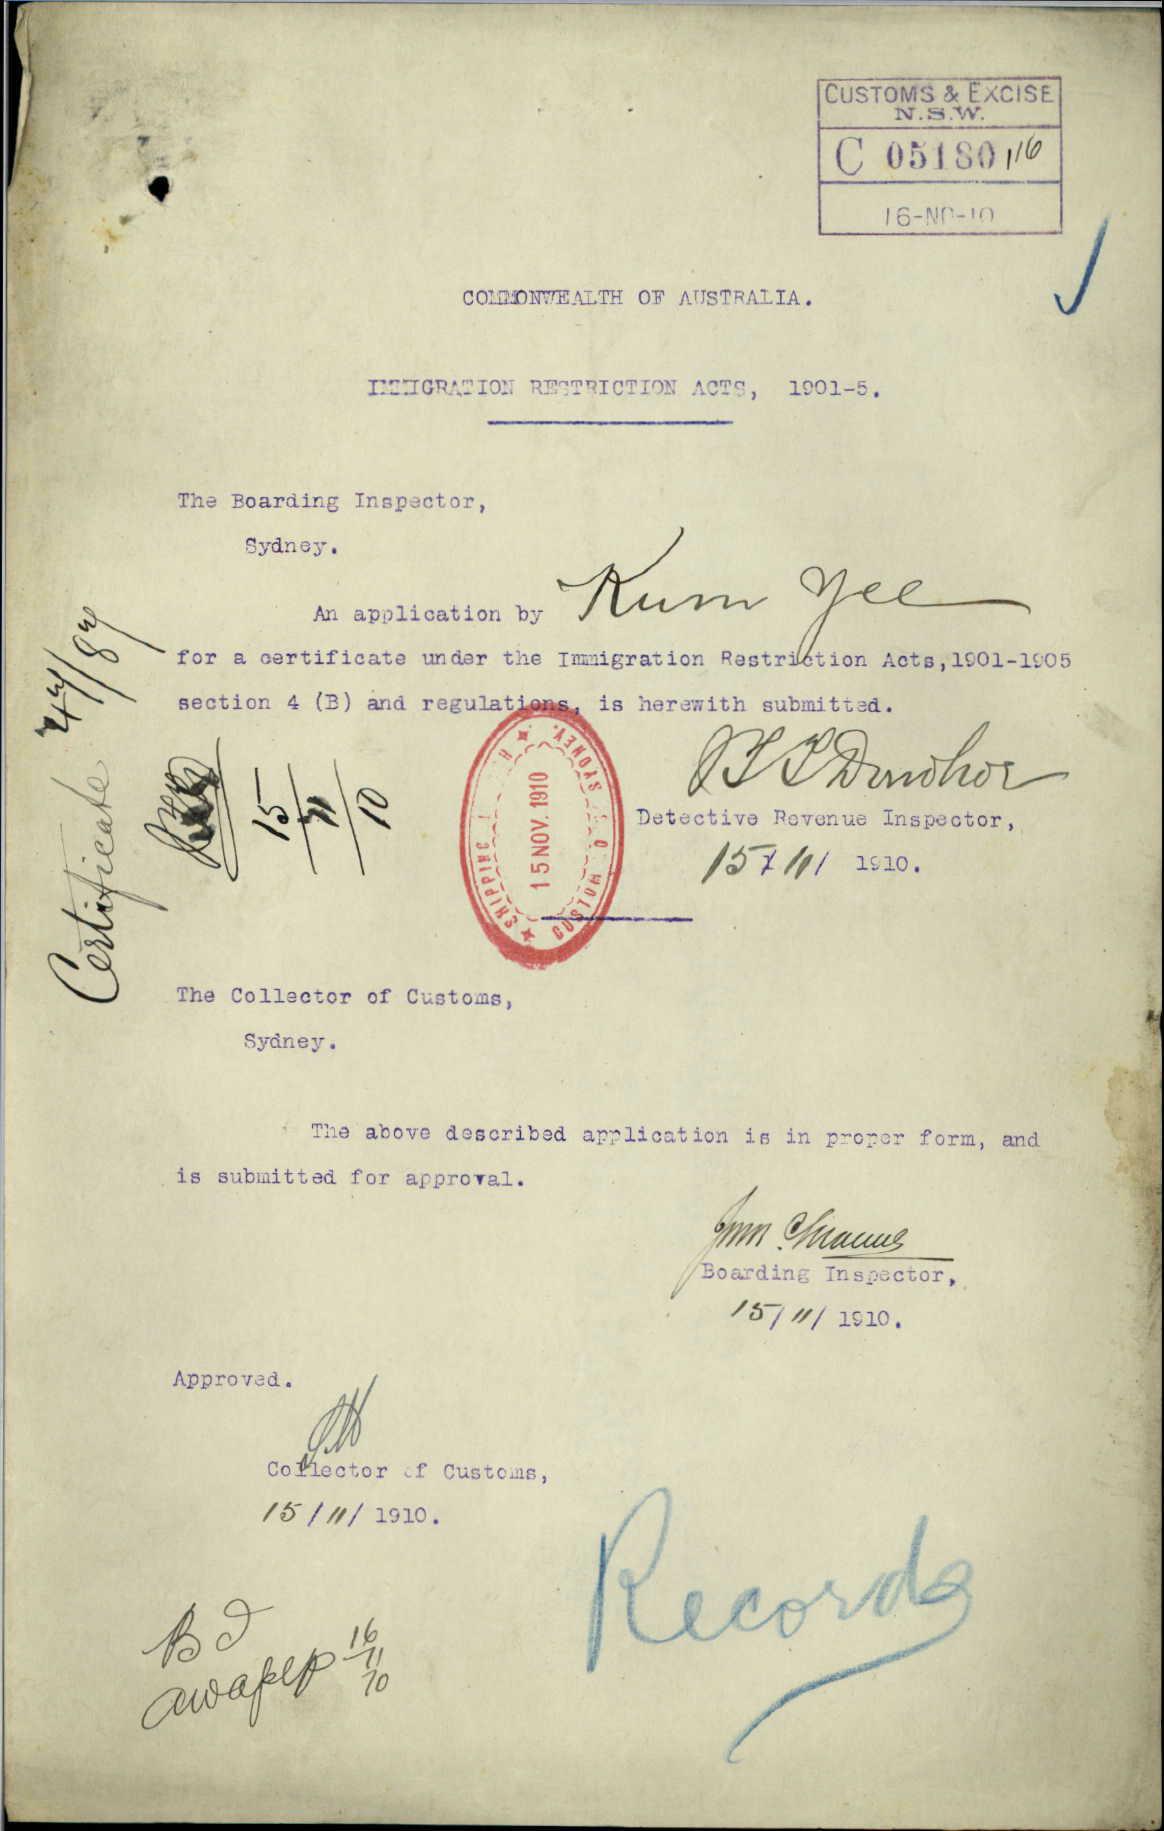 CUSTOMS & EXCISE
N.S.W.
C 05180
16-NO-10
COMMONWEALTH OF AUSTRALIA.
IMMIGRATION RESTRICTION ACTS, 1901-5.
The Boarding Inspector,
Sydney.
An application by Kum Yee
for a certificate under the Immigration Restriction Acts,1901-1905
section 4 (B) and regulations, is herewith submitted.
Certificate
15/11/10
SHIPPING
15 NOV. 1910
CUSTOM SYDNEY.
Donohoe
Detective Revenue Inspector,
15/11/ 1910.
The Collector of Customs,
Sydney.
The above described application is in proper form, and
is submitted for approval.
Boarding Inspector,
15/11/ 1910.
Approved.
Collector of Customs,
15/11/ 1910.
B I
16/11/10
Records